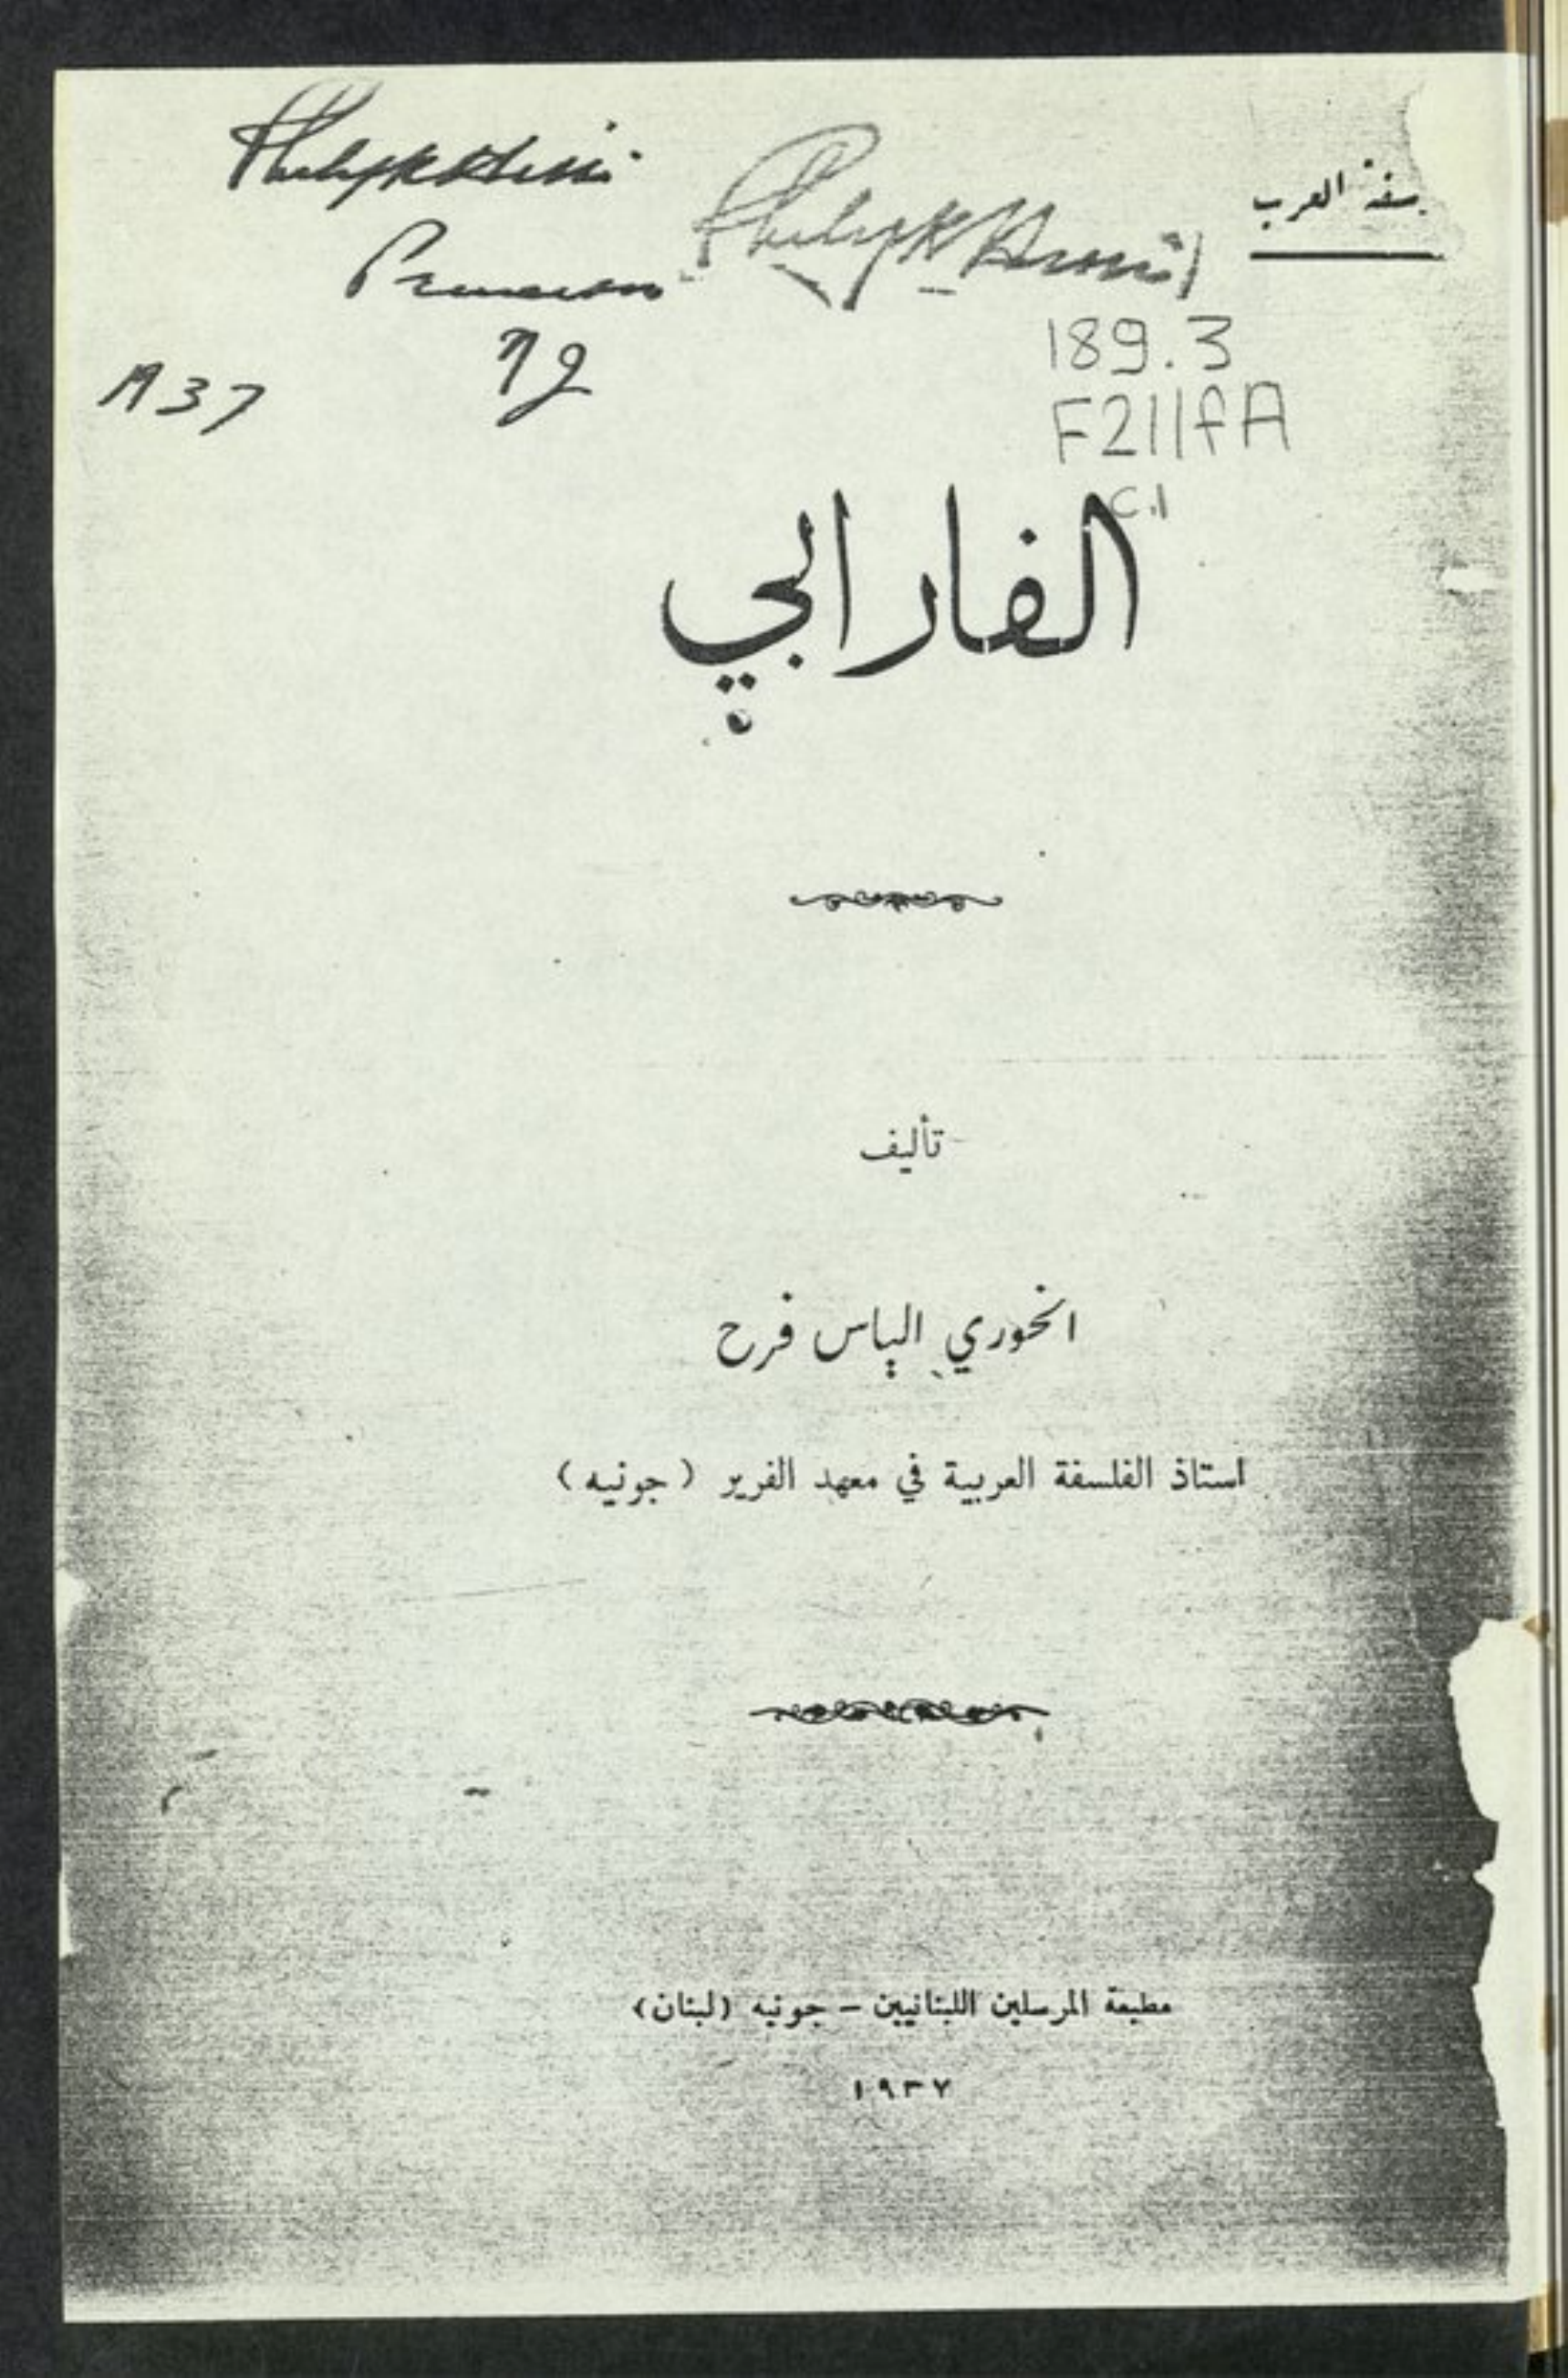 Philip K Hitti
Philip K Hitti
سفة العرب
Princeton
189.3
F211fA
c.1
الفارابي
تأليف
الخوري الياس فرح
استاذ الفلسفة العربية في معهد الفرير (جونيه)
مطبعة المرسلين اللبنانيين – جونيه (لبنان)
١٩٣٧